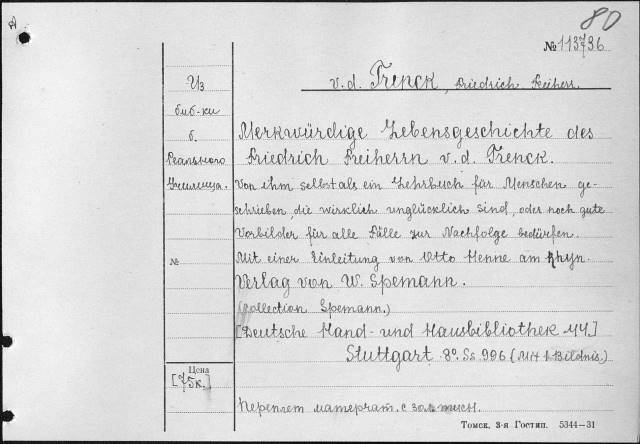 А
80
№ 113736
v. d. Trenck, Friedrich Freiherr.
Из
биб-ки
б.
Реального
Училища.
Merkwürdige Lebensgeschichte des
Friedrich Freiherrn v. d. Trenck.
Von ihm selbst als ein Lehrbuch für Menschen ge-
schrieben, die wirklich unglücklich sind, oder noch gute
Vorbilder für alle Fälle zur Nachfolge bedürfen.
№
Mit einer Einleitung von Otto Henne am Rhyn.
Verlag von W. Spemann.
(Collection Spemann.)
[Deutsche Hand- und Hausbibliothek
Stuttgart 8° Ss 996 (Mit 1 Bildnis.)
Цена
[75к.]
Переплет матерчат. с тисн.
Томск, 3-я Гостип. 5344—31